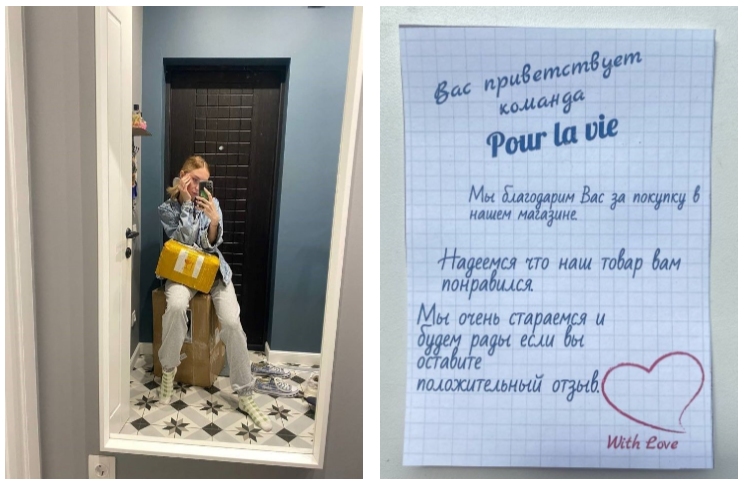 Вас приветствует
команда
Pour la vie
Мы благодарим Вас за покупку в
нашем магазине.
Надеемся что наш товар вам
понравился.
Мы очень стараемся и
будем рады если вы
оставите
положительный отзыв.
With Love